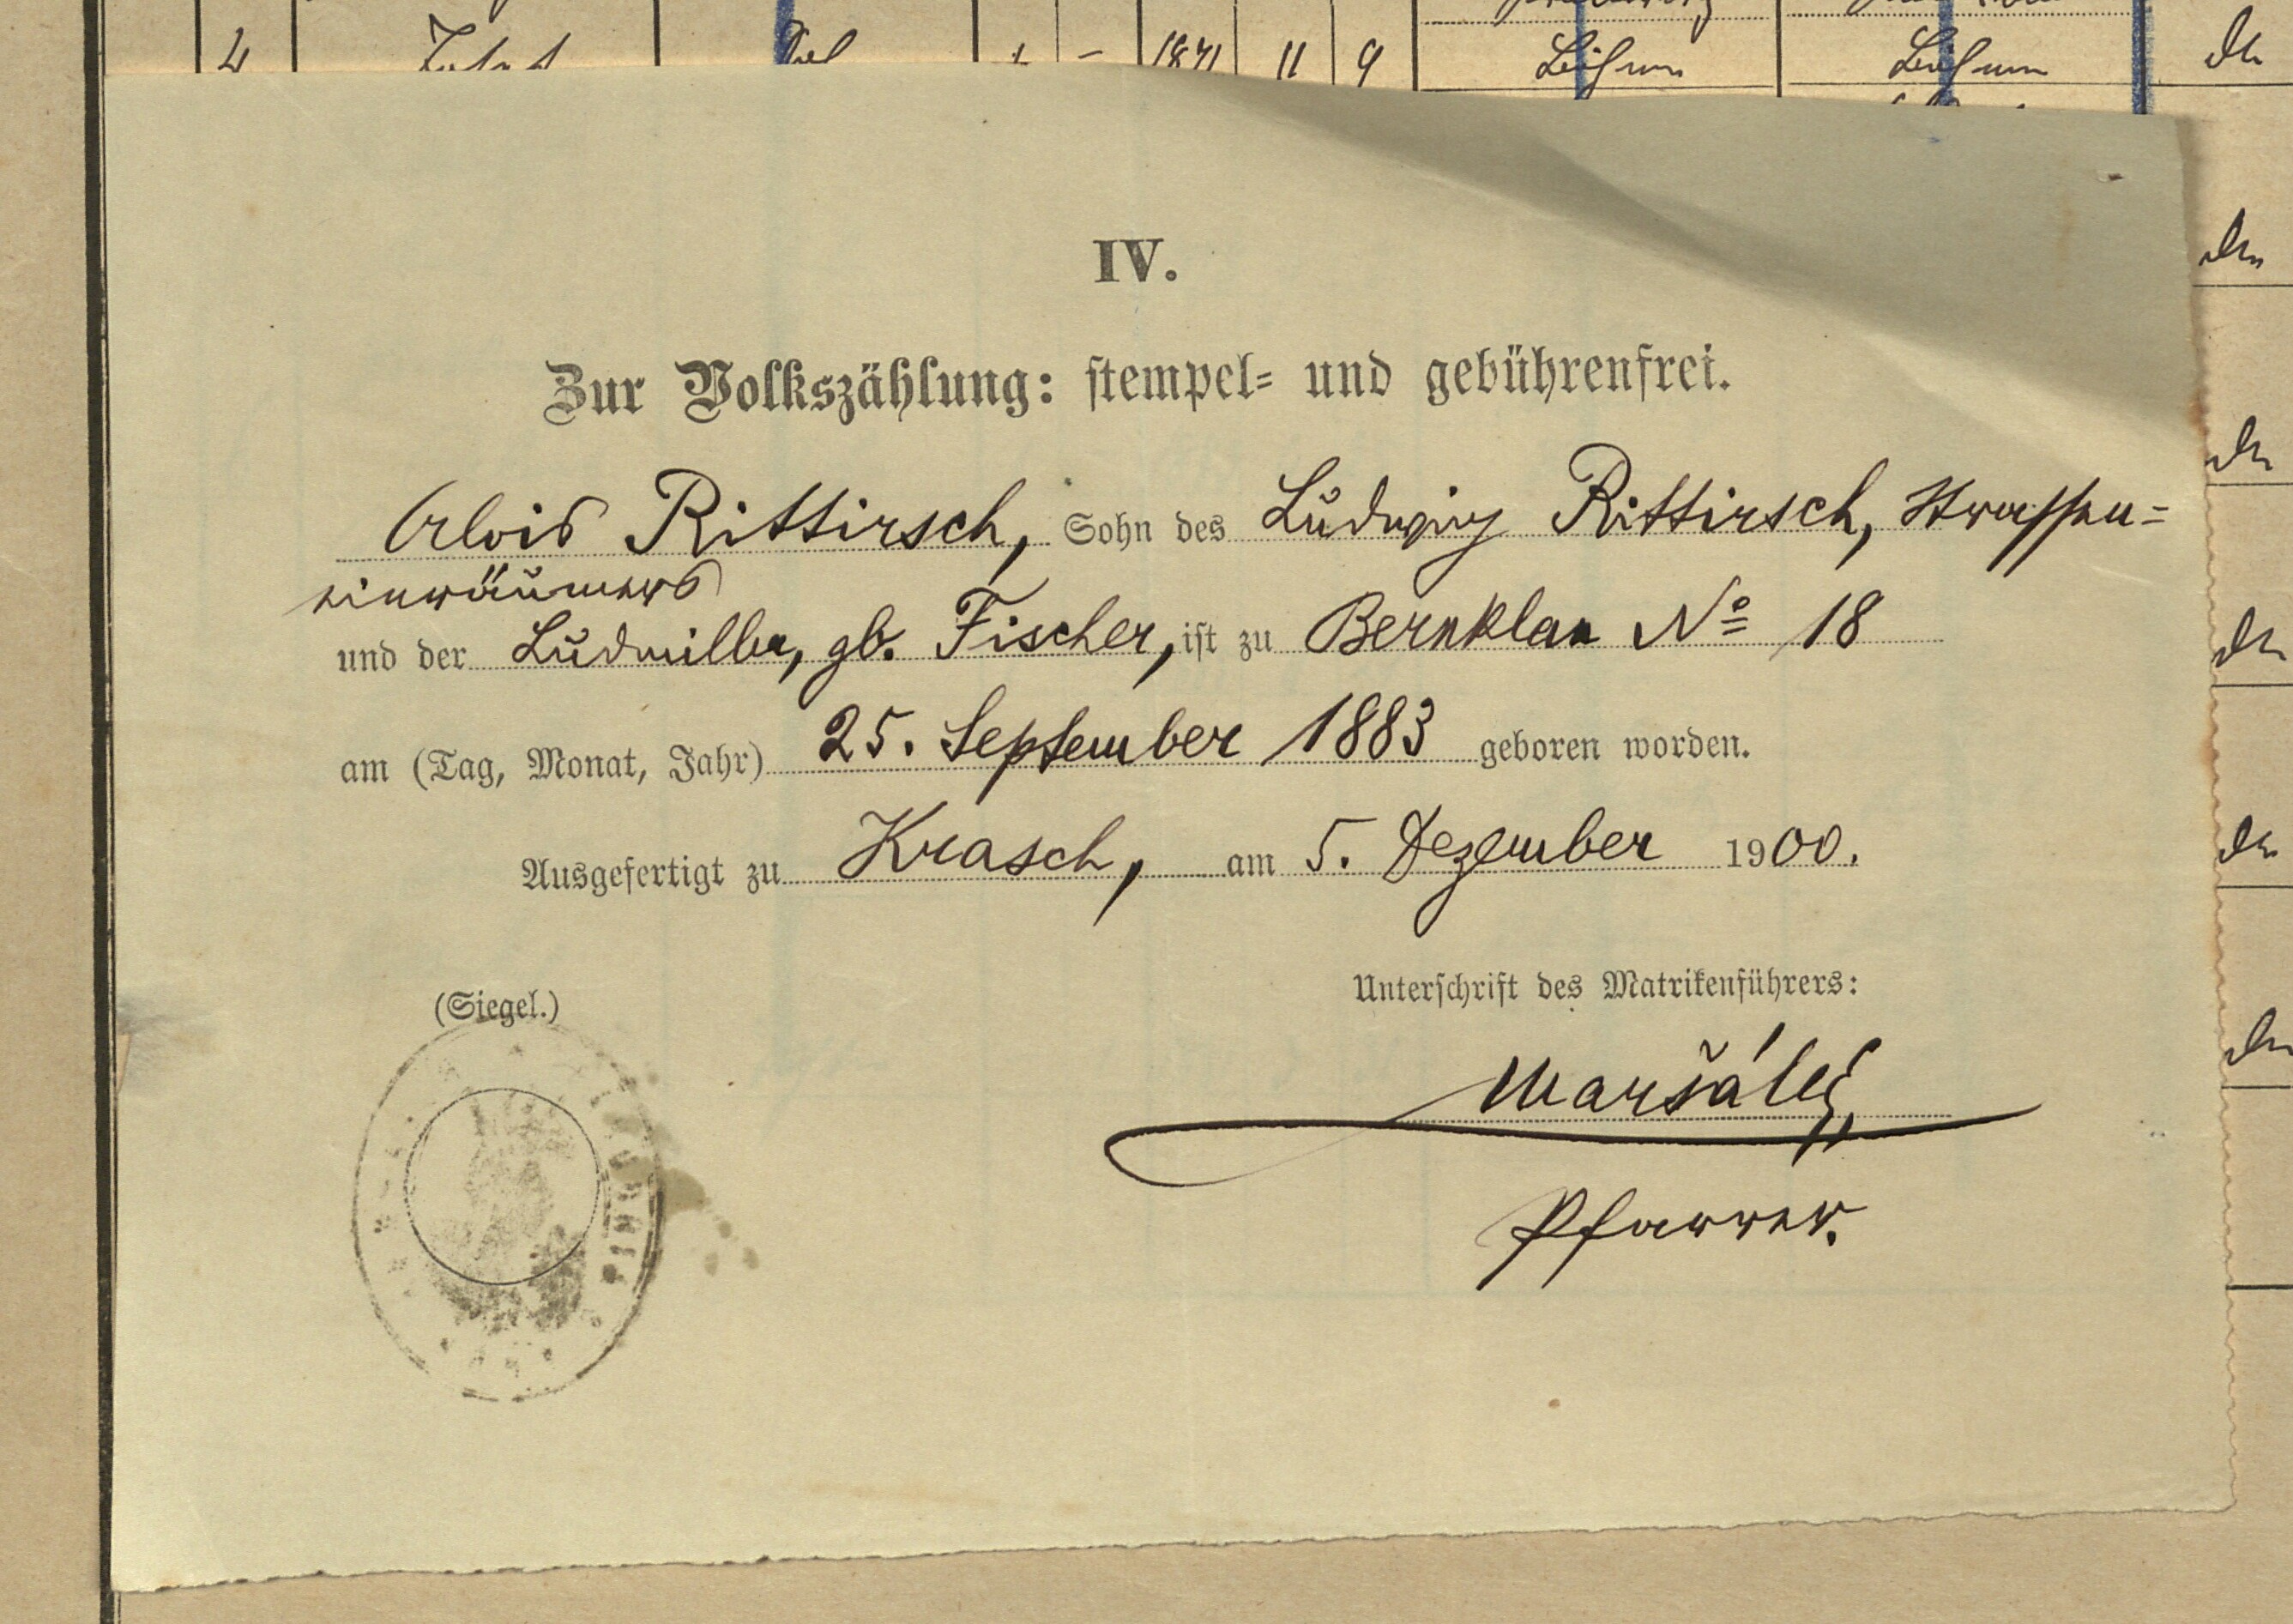 4 1871 11 9
IV.
Zur Volkszählung: stempel= und gebührenfrei.
Alois Rittirsch, Sohn des Ludwig Rittirsch, Strassen=
einräumers
und der Ludmilla, gb. Fischer, ist zu Bernklau No 18
am (Tag, Monat, Jahr) 25. September 1883 geboren worden.
Ausgefertigt zu Krasch, am 5. Dezember 1900.
(Siegel.)
Unterschrift des Matrikenführers:
Maršálek
Pfarrer.